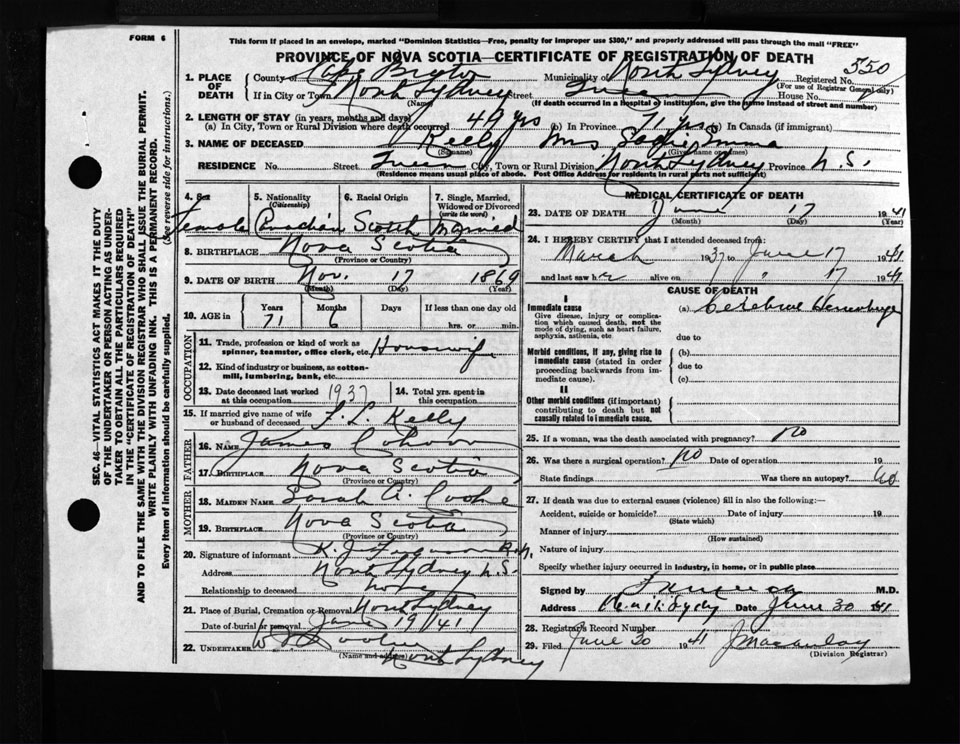 FORM 6
This form if placed in an envelope, marked "Dominion Statistics—Free, penalty for improper use $300," and properly addressed will pass through the mail "FREE"
PROVINCE OF NOVA SCOTIA—CERTIFICATE OF REGISTRATION OF DEATH
1. PLACE OF DEATH County of Cape Breton Municipality of North Sydney Registered No. 550
(For use of Registrar General only)
If in City or Town North Sydney Street Queen House No.
(Name) (If death occurred in a hospital or institution, give the name instead of street and number)
2. LENGTH OF STAY (in years, months and days)
(a) In City, Town or Rural Division where death occurred 49 yrs (b) In Province 71 yrs (c) In Canada (if immigrant)
3. NAME OF DECEASED Kelly Mrs Emma
(Surname) (Given name or names)
RESIDENCE No. Street Queen City, Town or Rural Division North Sydney Province N.S.
(Residence means usual place of abode. Post Office Address for residents in rural parts not sufficient)
SEC. 46—VITAL STATISTICS ACT MAKES IT THE DUTY
OF THE UNDERTAKER OR PERSON ACTING AS UNDER-
TAKER TO OBTAIN ALL THE PARTICULARS REQUIRED
IN THE "CERTIFICATE OF REGISTRATION OF DEATH"
AND TO FILE THE SAME WITH THE DIVISION REGISTRAR WHO SHALL ISSUE THE BURIAL PERMIT.
WRITE PLAINLY WITH UNFADING INK. THIS IS A PERMANENT RECORD.
Every item of information should be carefully supplied. (See reverse side for instructions.)
4. Sex 5. Nationality (Citizenship) 6. Racial Origin 7. Single, Married, Widowed or Divorced (write the word)
Female Canadian Scotch Married
8. BIRTHPLACE Nova Scotia
(Province or Country)
9. DATE OF BIRTH Nov. 17 1869
(Month) (Day) (Year)
10. AGE in Years Months Days If less than one day old
71 6 hrs. or min.
OCCUPATION
11. Trade, profession or kind of work as spinner, teamster, office clerk, etc. Housewife
12. Kind of industry or business, as cotton-mill, lumbering, bank, etc.
13. Date deceased last worked at this occupation 1937 14. Total yrs. spent in this occupation
15. If married give name of wife or husband of deceased L. Kelly
FATHER
16. NAME James
17. BIRTHPLACE Nova Scotia
(Province or Country)
MOTHER
18. MAIDEN NAME Sarah A. Cooke
19. BIRTHPLACE Nova Scotia
(Province or Country)
20. Signature of informant K. J. Ferguson R.N.
Address North Sydney N.S.
Relationship to deceased none
21. Place of Burial, Cremation or Removal North Sydney
Date of burial or removal June 19/41
22. UNDERTAKER
(Name and address) North Sydney
MEDICAL CERTIFICATE OF DEATH
23. DATE OF DEATH June 17 1941
(Month) (Day) (Year)
24. I HEREBY CERTIFY that I attended deceased from:
March 1937 to June 17 1941
and last saw her alive on " 17 1941
CAUSE OF DEATH
I
Immediate cause (a) Cerebral Hemorrhage
Give disease, injury or complication which caused death, not the mode of dying, such as heart failure, asphyxia, asthenia, etc.
due to
Morbid conditions, if any, giving rise to immediate cause (stated in order proceeding backwards from immediate cause).
(b)
due to
(c)
II
Other morbid conditions (if important) contributing to death but not causally related to immediate cause.
25. If a woman, was the death associated with pregnancy? No
26. Was there a surgical operation? No Date of operation 19
State findings Was there an autopsy? No
27. If death was due to external causes (violence) fill in also the following:—
Accident, suicide or homicide? Date of injury 19
(State which)
Manner of injury
(How sustained)
Nature of injury
Specify whether injury occurred in industry, in home, or in public place
Signed by M.D.
Address North Sydney Date June 30 1941
28. Registrar's Record Number
29. Filed June 30 1941 J Macaulay
(Division Registrar)